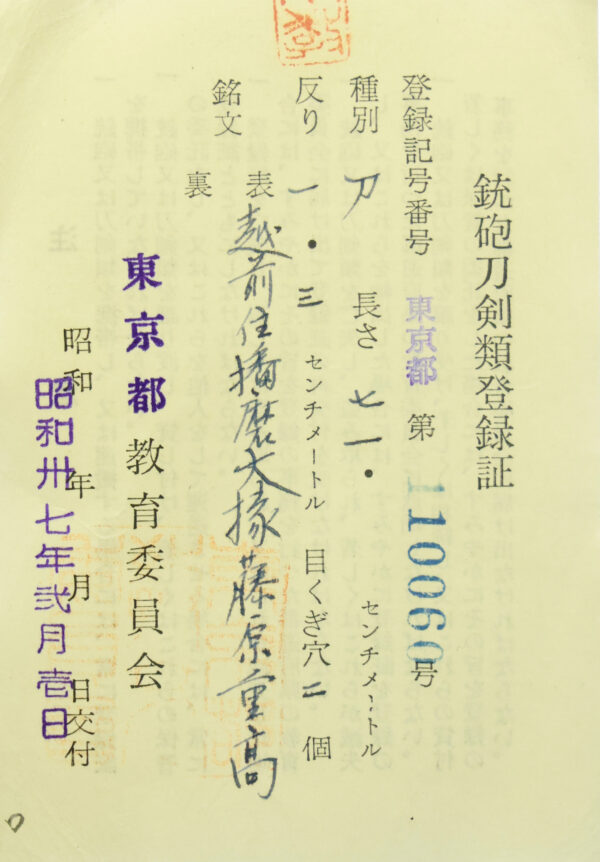 銃砲刀剣類登録証
登録記号番号 東京都 第110060号
種別 刀 長さ 七一・ センチメートル
反り 一・三 センチメートル 目くぎ穴 二 個
銘文 表 越前住播磨大掾藤原重高
裏
東京都 教育委員会
昭和 年 月 日交付
昭和卅七年弐月壱日